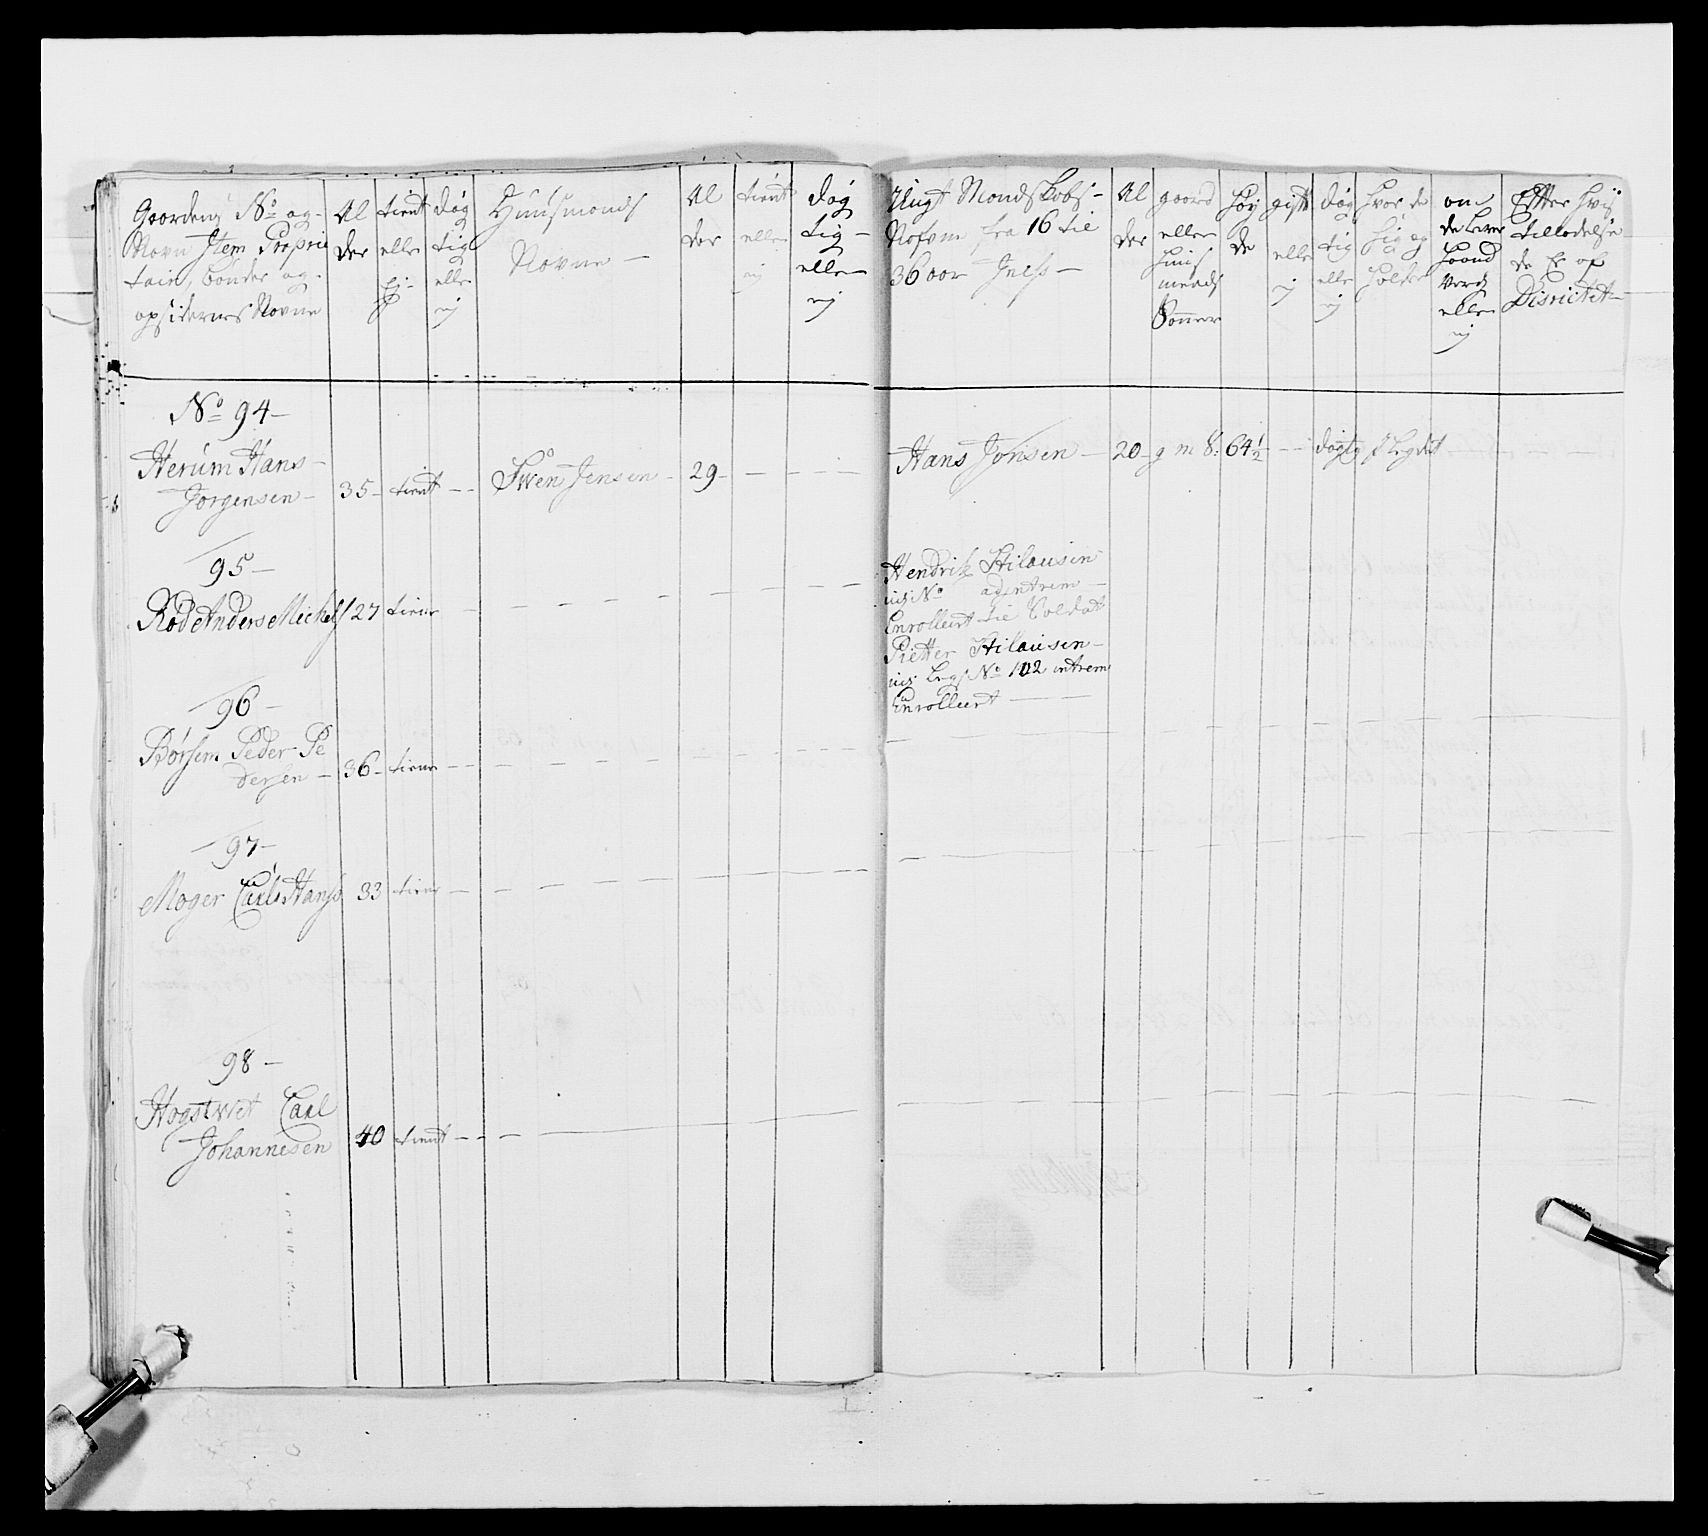 Gaardens No og
Navn Item Proprie
tair, bönder og
opsidernes Navne
Al
der
tient
eller
ej
døg
tig
eller
ej
Huusmands
Navne
Al
der
tient
eller
ej
døg
tig
eller
ej
Ungt Mandskabs
Nafvne fra 16 til
36 aar Incl:
Al
der
gaard
eller
huus
mands
Sønner
høy
de
gift
eller
ej
døg
tig
eller
ej
hvor de
sig op
holder
om
de lærer
haand
verck
eller
ej
Efter hvis
tilladelse
de er af
Districtet
No 94
Herum Hans
Jörgensen 35 tient
Swen Jensen 29
Hans Jonsen 20 g m S: 64 1/2 døgtig
95
Röd Anders Michels 27 tiener
Hendrich Hilausen
Enrollert til Soldat
Pietter Hilausen
Legs No 102 extrem
Enrollert
96
Börsem Peder Pe
dersen 36 tiener
97
Moger Carls Hanss 33 tiener
98
Hogstwet Carl
Johannesen 40 tient